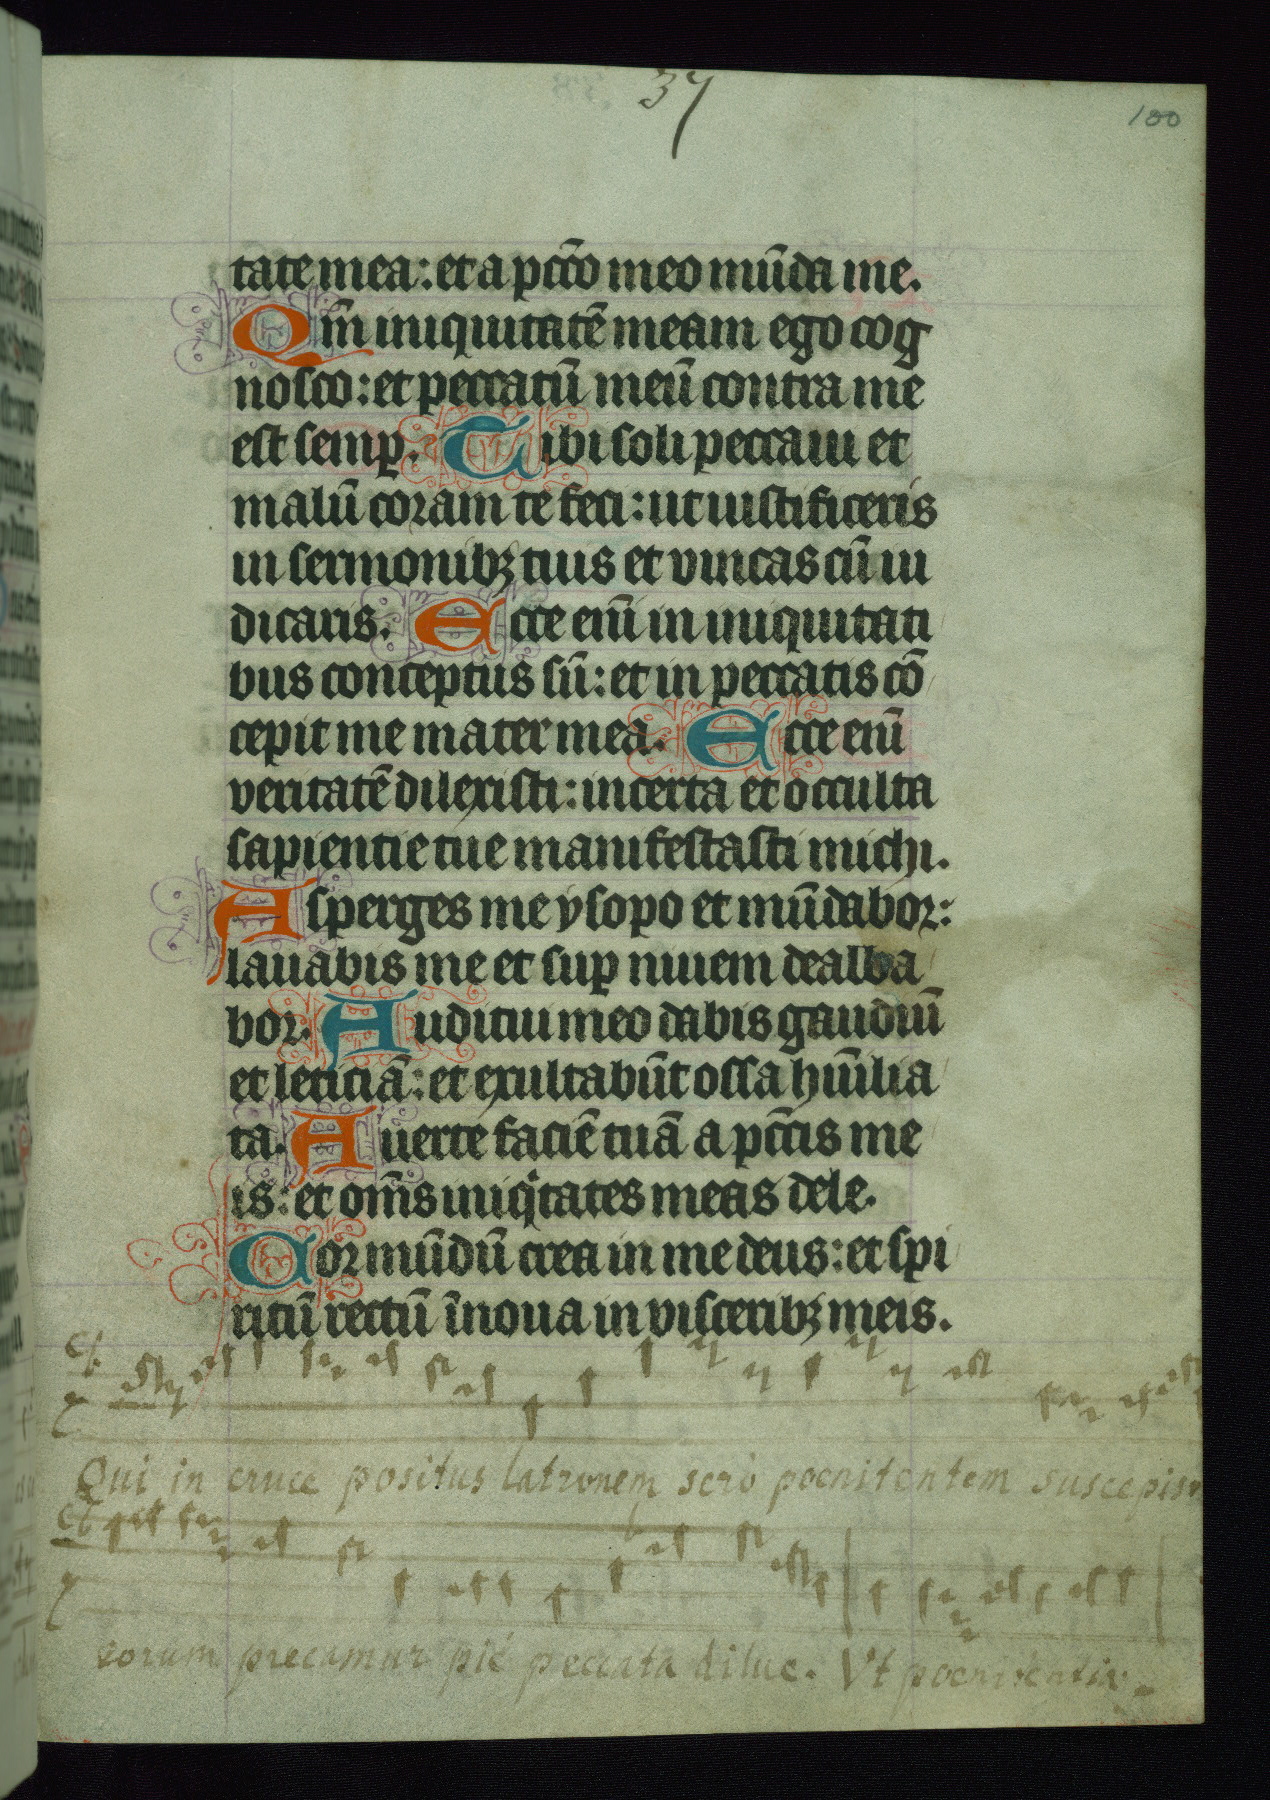 37
100
tate mea: et a pctō meo mūda me.
Qm̄ iniquitatē meam ego cog
nosco: et peccatū meū contra me
est semp. Tibi soli peccaui et
malū coram te feci: ut iustificeris
in sermonibꝫ tuis et vincas cū iu
dicaris. Ecce eni̅ in iniquitati
bus conceptus sū: et in peccatis cō
cepit me mater mea. Ecce eni̅
veritatē dilexisti: incerta et occulta
sapientie tue manifestasti michi.
Asperges me ysopo et mūdabor:
lauabis me et sup niuem dealba
bor. Auditui meo dabis gaudiū
et leticiā: et exultabūt ossa hūilia
ta. Auerte faciē tuā a pctīs me
is: et om̄s iniqͥtates meas dele.
Cor mūdū crea in me deus: et spi
ritū rectū īnoua in visceribꝫ meis.
Qui in cruce positus latronem serò poenitentem suscepisti
et
eorum precamur piè peccata dilue. Vt poenitentiā